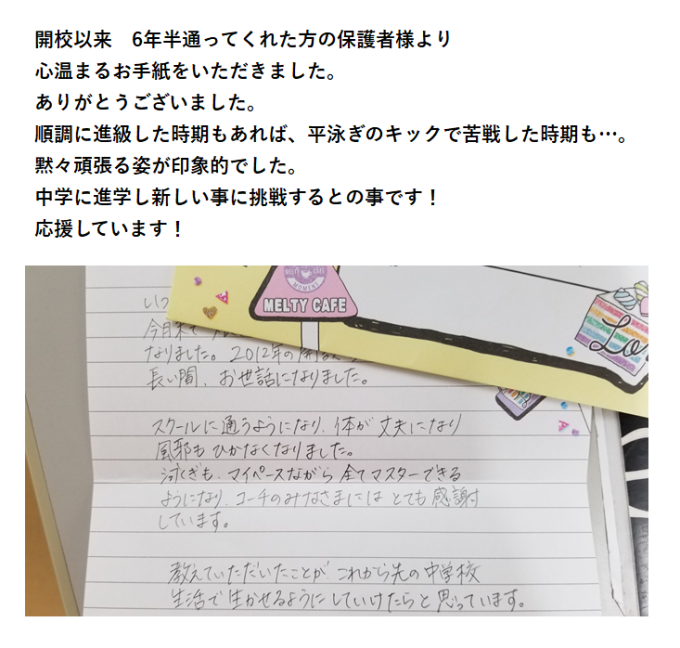 開校以来　6年半通ってくれた方の保護者様より
心温まるお手紙をいただきました。
ありがとうございました。
順調に進級した時期もあれば、平泳ぎのキックで苦戦した時期も…。
黙々頑張る姿が印象的でした。
中学に進学し新しい事に挑戦するとの事です！
応援しています！
MELTY CAFE
いつ
今月末で
なりました。2012年の開
長い間、お世話になりました。
スクールに通うようになり、体が丈夫になり
風邪もひかなくなりました。
泳ぎも、マイペースながら全てマスターできる
ようになり、コーチのみなさまにはとても感謝
しています。
教えていただいたことが、これから先の中学校
生活で生かせるようにしていけたらと思っています。